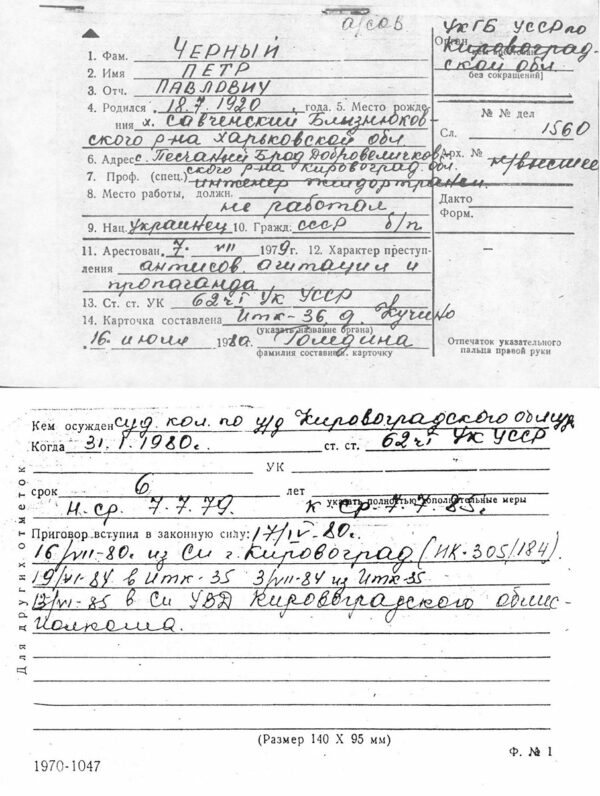 а/сов
УКГБ УССР по
Орган Кировоград-
ской обл.
без сокращений]
1. Фам. ЧЕРНЫЙ
2. Имя ПЕТР
3. Отч. ПАВЛОВИЧ
4. Родился 18.7.1920 года. 5. Место рожде-
ния х. Савченский Близнюков-
ского р-на Харьковской обл.
6. Адрес с. Песчаный Брод Добровеличков-
ского р-на Кировоград. обл.
7. Проф. (спец.) инженер
8. Место работы, должн.
не работал
9. Нац. Украинец 10. Гражд: СССР б/п
11. Арестован 7. VII 1979г. 12. Характер преступ-
ления антисов. агитация и
пропаганда
13. Ст. ст. УК 62 ч I УК УССР
14. Карточка составлена Итк-36, д. Кучино
(указать название органа)
16. июля 1980. Голедина
фамилия составив. карточку
№ № дел
Сл. 1560
Арх. № н/высшее
Дакто
Форм.
Отпечаток указательного
пальца правой руки
Кем осужден суд. кол. по у/д Кировоградского облсуда
Когда 31.I.1980г. ст. ст. 62 ч I УК УССР
УК
срок 6 лет
указать полностью дополнительные меры
н. ср. 7.7.79. к. ср. 7.7.85г.
Приговор вступил в законную силу: 17/IV-80г.
16/VII-80г. из Си г. Кировоград (ИК-305/184).
19/VI-84 в Итк-35 3/VII-84 из Итк-35
13/VI-85 в Си УВД Кировоградского облис-
полкома.
Для других отметок
(Размер 140 X 95 мм)
Ф. № 1
1970-1047